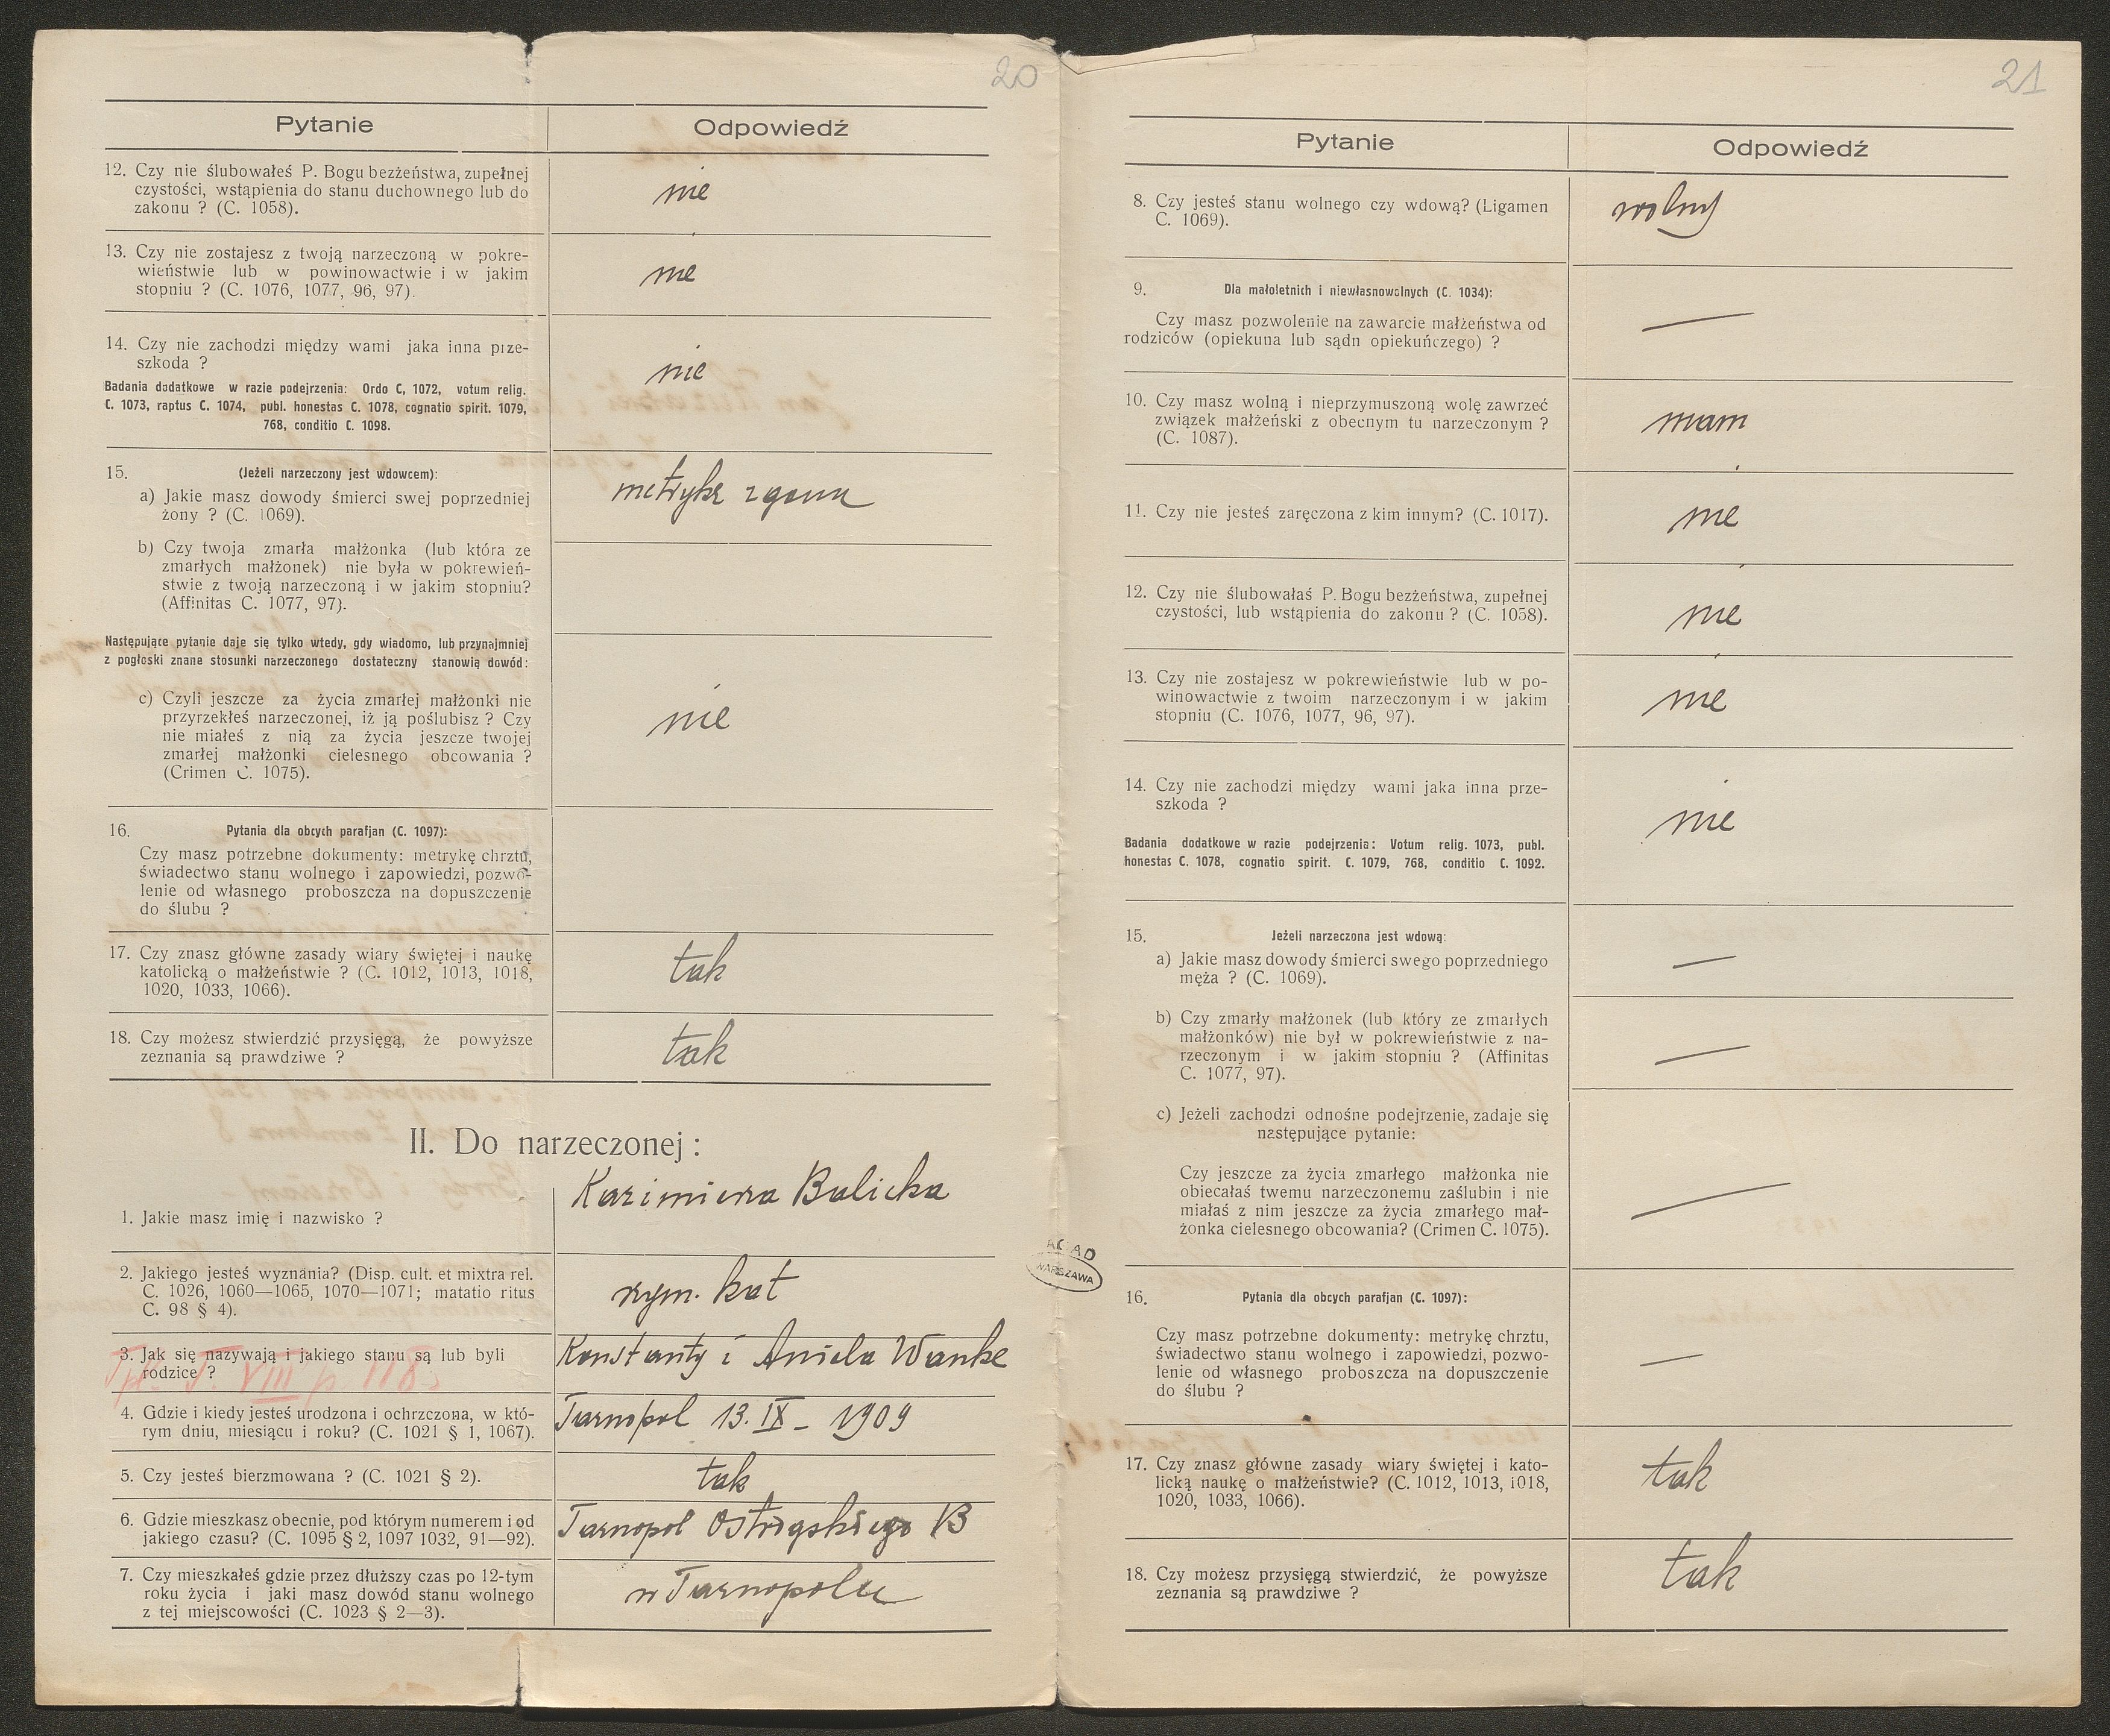 20
Pytanie
Odpowiedź
12. Czy nie ślubowałeś P. Bogu bezżeństwa, zupełnej
czystości, wstąpienia do stanu duchownego lub do
zakonu ? (C. 1058).
nie
13. Czy nie zostajesz z twoją narzeczoną w pokre-
wieństwie lub w powinowactwie i w jakim
stopniu ? (C. 1076, 1077, 96, 97).
nie
14. Czy nie zachodzi między wami jaka inna prze-
szkoda ?
nie
Badania dodatkowe w razie podejrzenia: Ordo C, 1072, votum relig.
C. 1073, raptus C. 1074, publ. honestas C. 1078, cognatio spirit. 1079,
768, conditio C. 1098.
15. (Jeżeli narzeczony jest wdowcem):
a) Jakie masz dowody śmierci swej poprzedniej
żony ? (C. 1069).
metrykę zgonu
b) Czy twoja zmarła małżonka (lub która ze
zmarłych małżonek) nie była w pokrewień-
stwie z twoją narzeczoną i w jakim stopniu?
(Affinitas C. 1077, 97).
Następujące pytanie daje się tylko wtedy, gdy wiadomo, lub przynajmniej
z pogłoski znane stosunki narzeczonego dostateczny stanowią dowód:
c) Czyli jeszcze za życia zmarłej małżonki nie
przyrzekłeś narzeczonej, iż ją poślubisz ? Czy
nie miałeś z nią za życia jeszcze twojej
zmarłej małżonki cielesnego obcowania ?
(Crimen C. 1075).
nie
16. Pytania dla obcych parafjan (C. 1097):
Czy masz potrzebne dokumenty: metrykę chrztu,
świadectwo stanu wolnego i zapowiedzi, pozwo-
lenie od własnego proboszcza na dopuszczenie
do ślubu ?
17. Czy znasz główne zasady wiary świętej i naukę
katolicką o małżeństwie ? (C. 1012, 1013, 1018,
1020, 1033, 1066).
tak
18. Czy możesz stwierdzić przysięgą, że powyższe
zeznania są prawdziwe ?
tak
II. Do narzeczonej :
1. Jakie masz imię i nazwisko ?
Kazimiera Balicka
2. Jakiego jesteś wyznania? (Disp. cult. et mixtra rel.
C. 1026, 1060—1065, 1070—1071; matatio ritus
C. 98 § 4).
rzym. kat
3. Jak się nazywają i jakiego stanu są lub byli
rodzice ?
Konstanty i Aniela Wanke
T. VIII p 118
4. Gdzie i kiedy jesteś urodzona i ochrzczona, w któ-
rym dniu, miesiącu i roku? (C. 1021 § 1, 1067).
Tarnopol 13. IX - 1909
5. Czy jesteś bierzmowana ? (C. 1021 § 2).
tak
6. Gdzie mieszkasz obecnie, pod którym numerem i od
jakiego czasu? (C. 1095 § 2, 1097 1032, 91—92).
Tarnopol Ostrogskiego 13
7. Czy mieszkałeś gdzie przez dłuższy czas po 12-tym
roku życia i jaki masz dowód stanu wolnego
z tej miejscowości (C. 1023 § 2—3).
w Tarnopolu
AGAD
WARSZAWA
21
Pytanie
Odpowiedź
8. Czy jesteś stanu wolnego czy wdową? (Ligamen
C. 1069).
wolny
9. Dla małoletnich i niewłasnowolnych (C. 1034):
Czy masz pozwolenie na zawarcie małżeństwa od
rodziców (opiekuna lub sądn opiekuńczego) ?
—
10. Czy masz wolną i nieprzymuszoną wolę zawrzeć
związek małżeński z obecnym tu narzeczonym ?
(C. 1087).
mam
11. Czy nie jesteś zaręczona z kim innym? (C. 1017).
nie
12. Czy nie ślubowałaś P. Bogu bezżeństwa, zupełnej
czystości, lub wstąpienia do zakonu ? (C. 1058).
nie
13. Czy nie zostajesz w pokrewieństwie lub w po-
winowactwie z twoim narzeczonym i w jakim
stopniu (C. 1076, 1077, 96, 97).
nie
14. Czy nie zachodzi między wami jaka inna prze-
szkoda ?
nie
Badania dodatkowe w razie podejrzenia: Votum relig. 1073, publ.
honestas C. 1078, cognatio spirit. C. 1079, 768, conditio C. 1092.
15. Jeżeli narzeczona jest wdową:
a) Jakie masz dowody śmierci swego poprzedniego
męża ? (C. 1069).
—
b) Czy zmarły małżonek (lub który ze zmarłych
małżonków) nie był w pokrewieństwie z na-
rzeczonym i w jakim stopniu ? (Affinitas
C. 1077, 97).
—
c) Jeżeli zachodzi odnośne podejrzenie, zadaje się
następujące pytanie:
Czy jeszcze za życia zmarłego małżonka nie
obiecałaś twemu narzeczonemu zaślubin i nie
miałaś z nim jeszcze za życia zmarłego mał-
żonka cielesnego obcowania? (Crimen C. 1075).
—
16. Pytania dla obcych parafjan (C. 1097):
Czy masz potrzebne dokumenty: metrykę chrztu,
świadectwo stanu wolnego i zapowiedzi, pozwo-
lenie od własnego proboszcza na dopuszczenie
do ślubu ?
—
17. Czy znasz główne zasady wiary świętej i kato-
licką naukę o małżeństwie? (C. 1012, 1013, 1018,
1020, 1033, 1066).
tak
18. Czy możesz przysięgą stwierdzić, że powyższe
zeznania są prawdziwe ?
tak